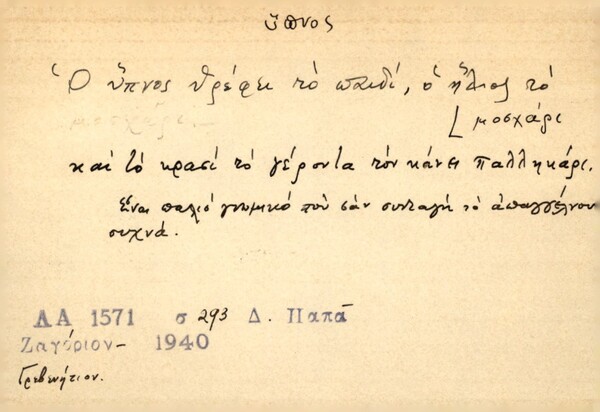 ὕπνος
Ὁ ὕπνος θρέφει τὸ παιδί, ὁ ἥλιος τὸ
μοσχάρι
μοσχάρι.
καὶ τὸ κρασὶ τὸ γέροντα τὸν κάνει παλληκάρι.
Εἶναι παλιὸ γνωμικὸ ποὺ σὰν συνταγὴ τὸ ἀπαγγέλνουν
συχνά.
ΛΑ 1571 σ 293 Δ. Παπᾶ
Ζαγόριον - 1940
Γρεβενήτιον.